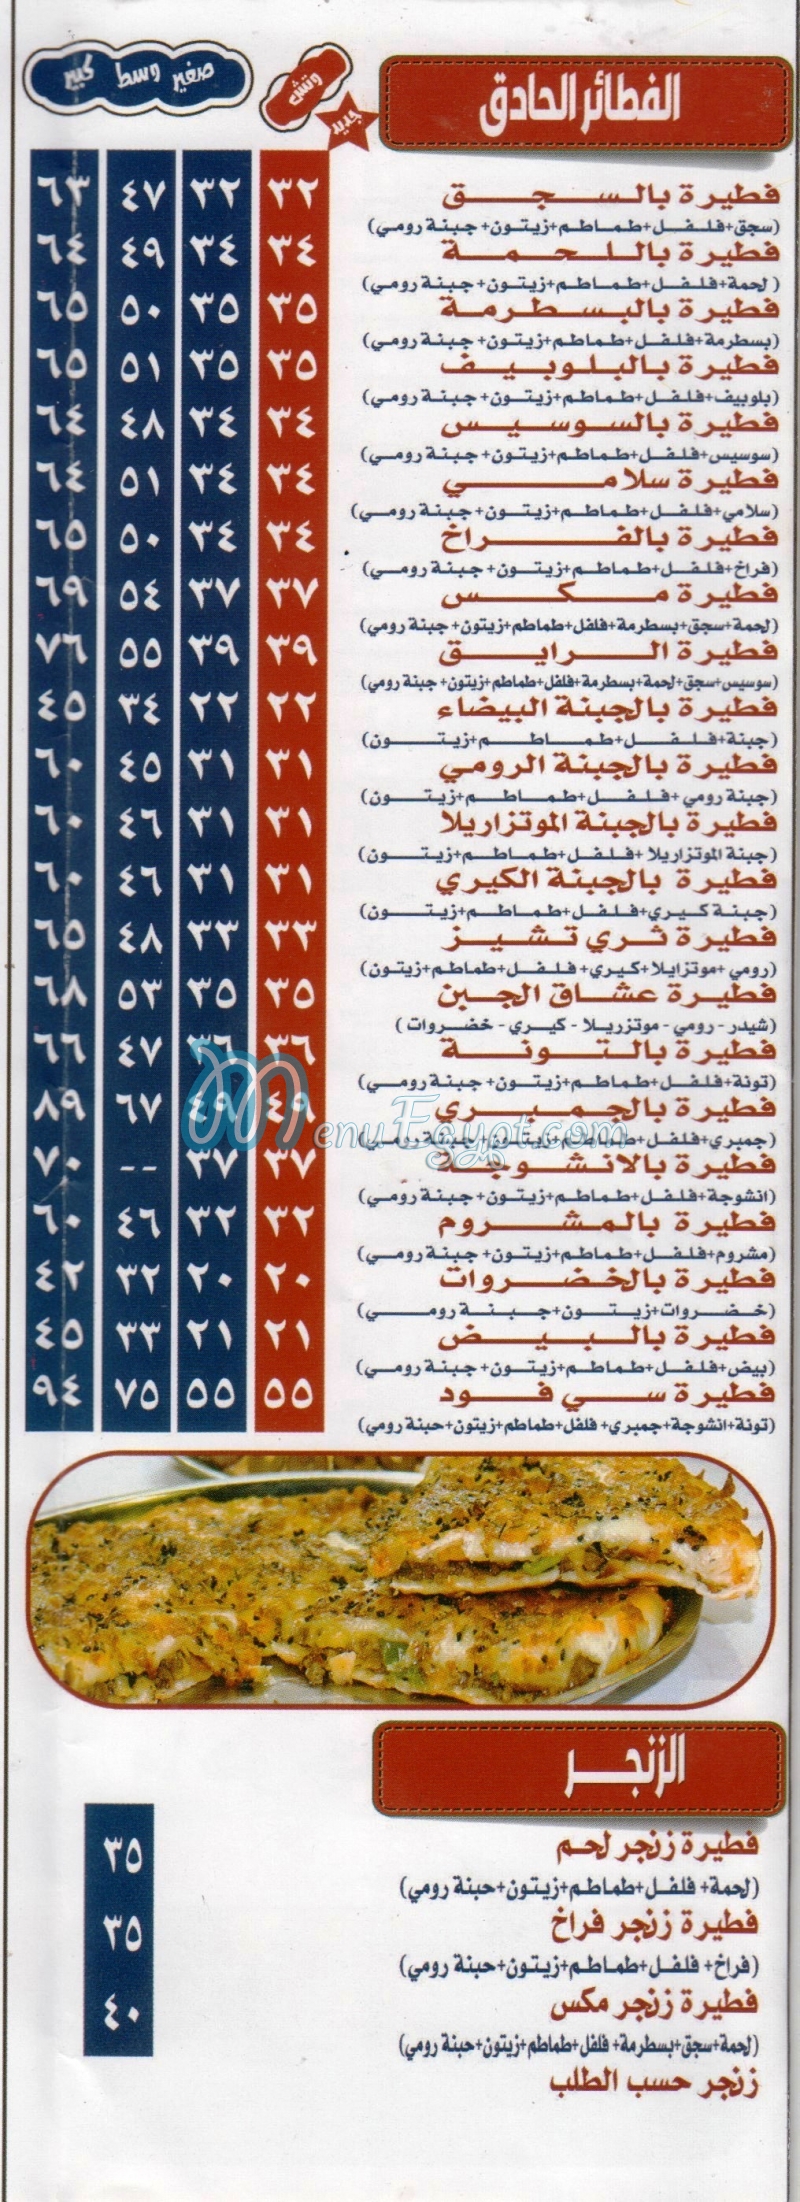 الفطائر الحادق
جديد وتش صغير وسط كبير
فطيرة بالسجق ٣٢ ٣٢ ٤٧ ٦٣
(سجق+فلفل+طماطم+زيتون+جبنة رومي)
فطيرة باللحمة ٣٤ ٣٤ ٤٩ ٦٤
(لحمة+فلفل+طماطم+زيتون+جبنة رومي)
فطيرة بالبسطرمة ٣٥ ٣٥ ٥٠ ٦٥
(بسطرمة+فلفل+طماطم+زيتون+جبنة رومي)
فطيرة بالبلوبيف ٣٥ ٣٥ ٥١ ٦٥
(بلوبيف+فلفل+طماطم+زيتون+جبنة رومي)
فطيرة بالسوسيس ٣٤ ٣٤ ٤٨ ٦٤
(سوسيس+فلفل+طماطم+زيتون+جبنة رومي)
فطيرة سلامي ٣٤ ٣٤ ٥١ ٦٤
(سلامي+فلفل+طماطم+زيتون+جبنة رومي)
فطيرة بالفراخ ٣٤ ٣٤ ٥٠ ٦٥
(فراخ+فلفل+طماطم+زيتون+جبنة رومي)
فطيرة مكس ٣٧ ٣٧ ٥٤ ٦٩
(لحمة+سجق+بسطرمة+فلفل+طماطم+زيتون+جبنة رومي)
فطيرة الرايق ٣٩ ٣٩ ٥٥ ٧٦
(سوسيس+سجق+لحمة+بسطرمة+فلفل+طماطم+زيتون+جبنة رومي)
فطيرة بالجبنة البيضاء ٢٢ ٢٢ ٣٤ ٤٥
(جبنة+فلفل+طماطم+زيتون)
فطيرة بالجبنة الرومي ٣١ ٣١ ٤٥ ٦٠
(جبنة رومي+فلفل+طماطم+زيتون)
فطيرة بالجبنة الموتزاريلا ٣١ ٣١ ٤٦ ٦٠
(جبنة الموتزاريلا+فلفل+طماطم+زيتون)
فطيرة بالجبنة الكيري ٣١ ٣١ ٤٦ ٦٠
(جبنة كيري+فلفل+طماطم+زيتون)
فطيرة ثري تشيز ٣٣ ٣٣ ٤٨ ٦٥
(رومي+موتزايلا+كيري+فلفل+طماطم+زيتون)
فطيرة عشاق الجبن ٣٥ ٣٥ ٥٣ ٦٨
(شيدر - رومي - موتزريلا - كيري - خضروات)
فطيرة بالتونة ٣٦ ٣٦ ٤٧ ٦٦
(تونة+فلفل+طماطم+زيتون+جبنة رومي)
فطيرة بالجمبري ٤٩ ٤٩ ٦٧ ٨٩
MenuEgypt.com
(جمبري+فلفل+طماطم+زيتون+جبنة رومي)
فطيرة بالانشوجة ٣٧ ٣٧ -- ٧٠
(انشوجة+فلفل+طماطم+زيتون+جبنة رومي)
فطيرة بالمشروم ٣٢ ٣٢ ٤٦ ٦٠
(مشروم+فلفل+طماطم+زيتون+جبنة رومي)
فطيرة بالخضروات ٢٠ ٢٠ ٣٢ ٤٢
(خضروات+زيتون+جبنة رومي)
فطيرة بالبيض ٢١ ٢١ ٣٣ ٤٥
(بيض+فلفل+طماطم+زيتون+جبنة رومي)
فطيرة سي فود ٥٥ ٥٥ ٧٥ ٩٤
(تونة+انشوجة+جمبري+فلفل+طماطم+زيتون+حبنة رومي)
الزنجر
فطيرة زنجر لحم ٣٥
(لحمة+ فلفل+طماطم+زيتون+حبنة رومي)
فطيرة زنجر فراخ ٣٥
(فراخ+ فلفل+طماطم+زيتون+حبنة رومي)
فطيرة زنجر مكس ٤٠
(لحمة+سجق+بسطرمة+ فلفل+طماطم+زيتون+حبنة رومي)
زنجر حسب الطلب